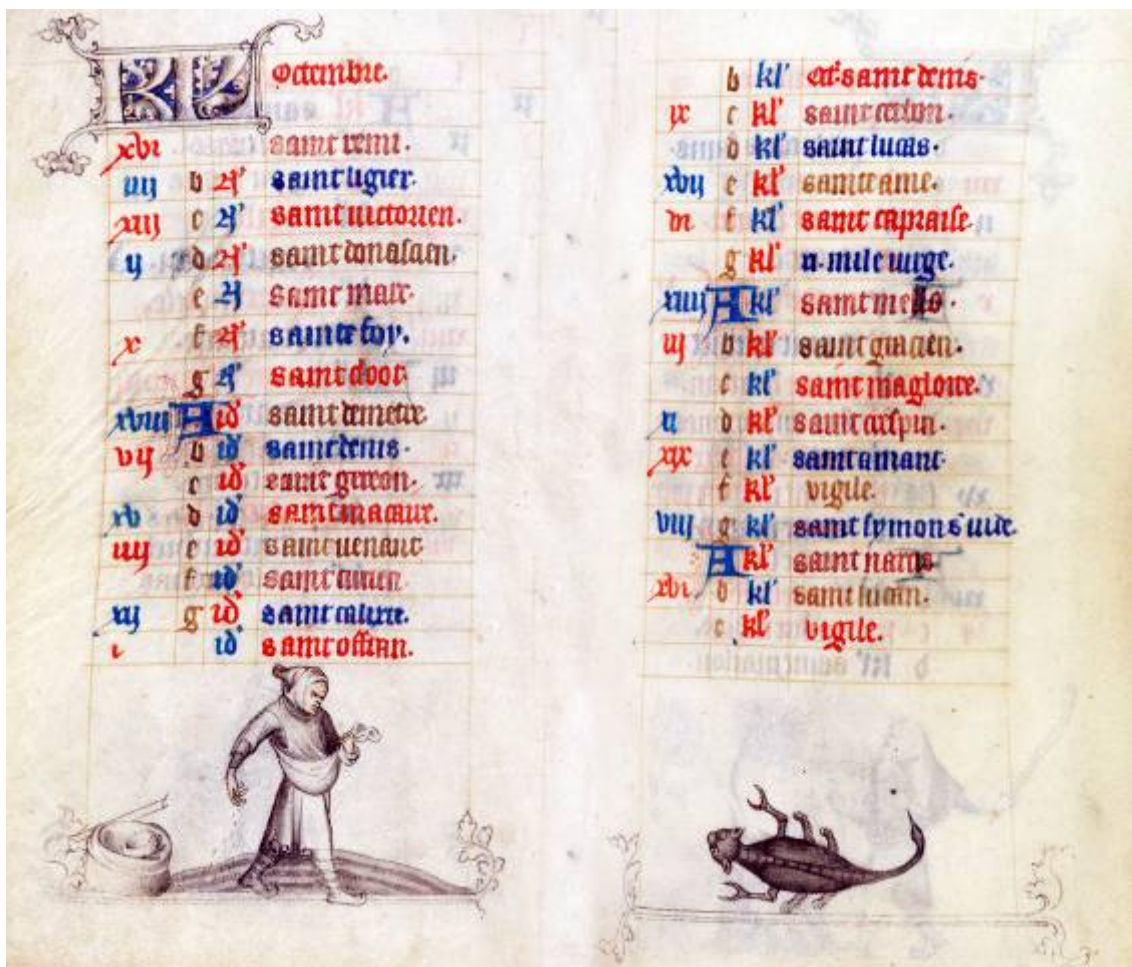 KL Octembre.
xvi saint remi.
iiij b saint ligier.
xiij c saint victorien.
ij d saint donasien.
e saint marc.
x f sainte foy.
g saint cloot.
xviij A id' saint demetre.
vij b id' saint denis.
c id' saint gereon.
xv d id' saint maceur.
iiij e id' saint venant.
f id' saint
xij g id' saint calixte.
i id' saint
b kl' saint denis.
ix c kl'
d kl' saint lucas.
xvij e kl' sainte ame.
vi f kl' saint capraise.
g kl' xi. mile virge.
xiiij A kl' saint mello.
iij b kl' saint gracien.
c kl' saint magloire.
xi d kl' saint crespin.
xix e kl' saint amant.
f kl' vigile.
viij g kl' saint symon s' iude.
A kl' saint narcis
xvi b kl' saint lucain.
c kl' vigile.